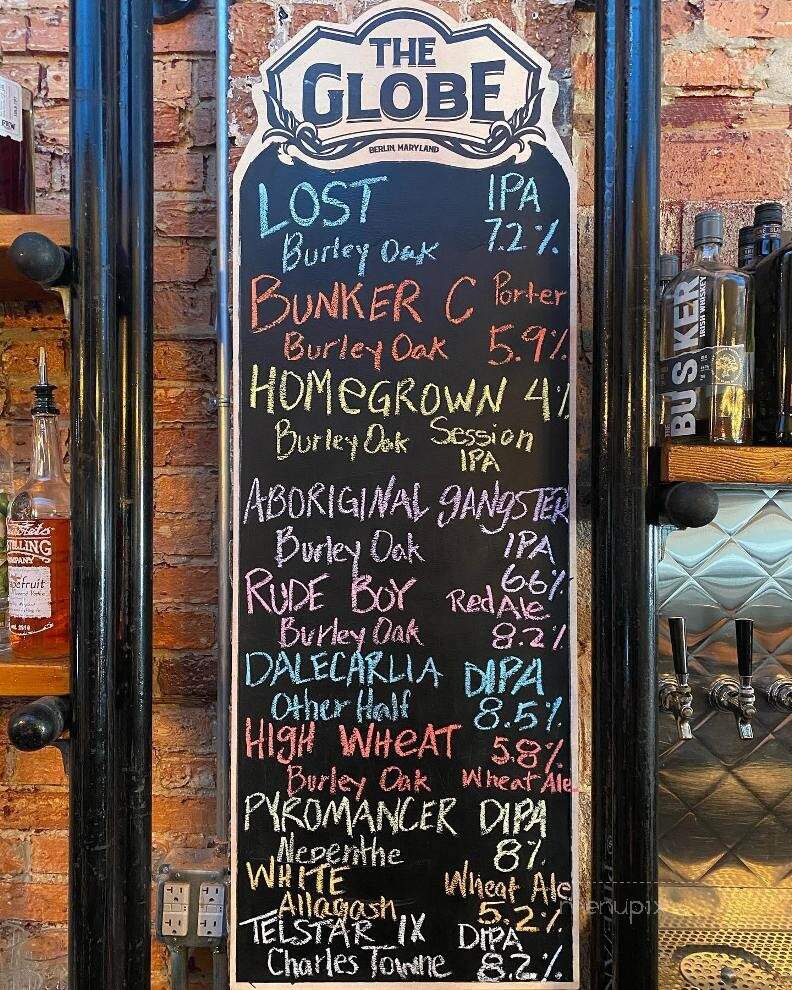 THE
GLOBE
BERLIN, MARYLAND
LOST IPA
Burley Oak 7.2%
BUNKER C Porter
Burley Oak 5.9%
HOMEGROWN 4%
Burley Oak Session
IPA
ABORIGINAL GANGSTER
Burley Oak IPA
66%
RUDE BOY Red Ale
Burley Oak 8.2%
DALECARLIA DIPA
Other Half 8.5%
HIGH WHEAT 5.8%
Burley Oak Wheat Ale
PYROMANCER DIPA
Nepenthe 8%
WHITE Wheat Ale
Allagash 5.2%
TELSTAR IX DIPA
Charles Towne 8.2%
BUSKER
IRISH WHISKEY
TILLING
menupix